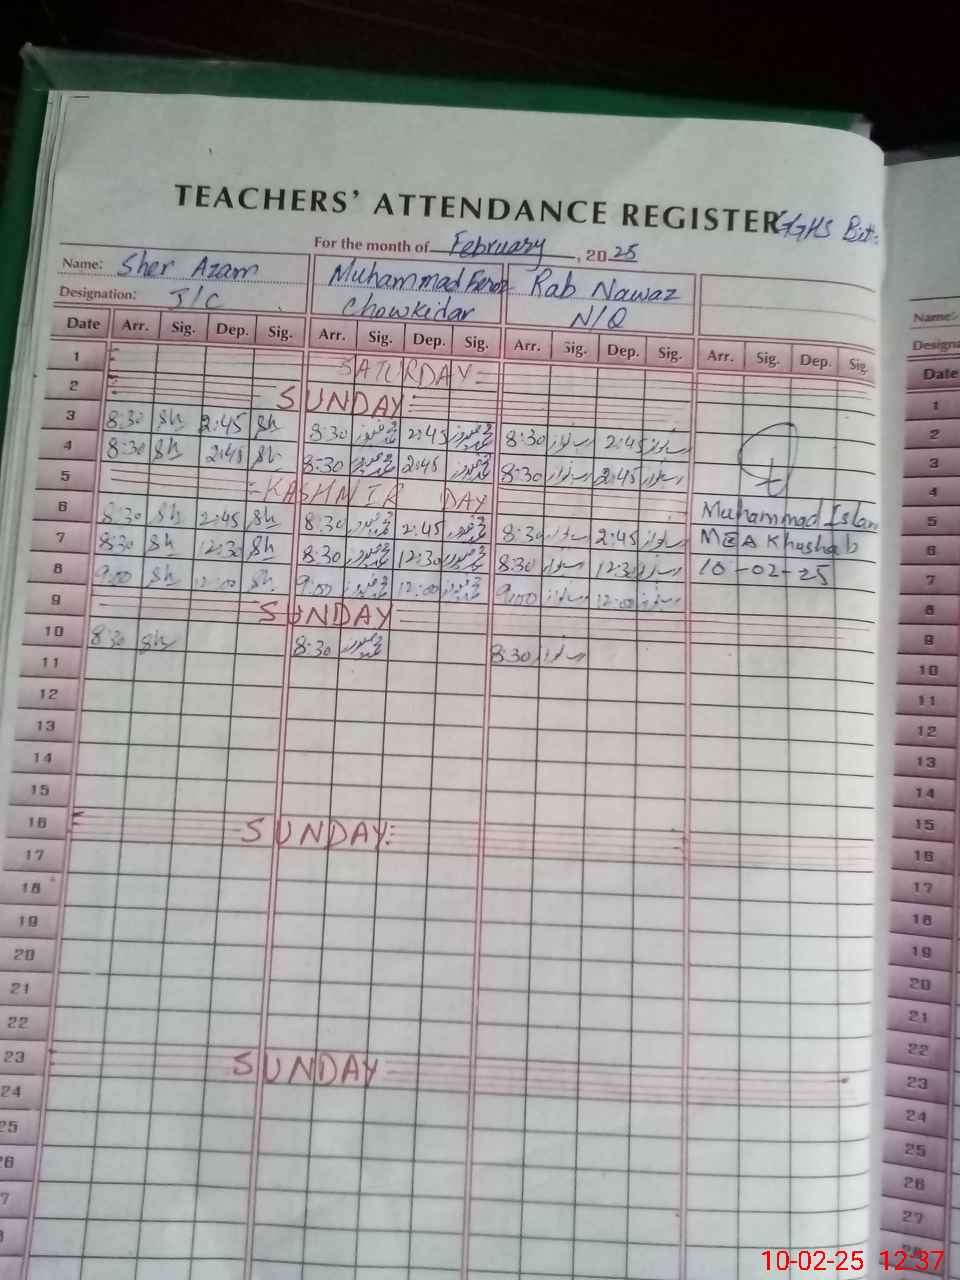 TEACHERS' ATTENDANCE REGISTER GGHS
For the month of February, 2025
Name: Sher Azam Muhammad Rab Nawaz
Designation: J/C Chowkidar N/Q
Date Arr. Sig. Dep. Sig. Arr. Sig. Dep. Sig. Arr. Sig. Dep. Sig. Arr. Sig. Dep. Sig.
1 SATURDAY
2 SUNDAY
3 8:30 Sh 2:45 Sh 8:30 2:45 8:30 2:45
4 8:30 Sh 2:45 Sh 8:30 2:45 8:30 2:45
5 KASHMIR DAY
6 8:30 Sh 2:45 Sh 8:30 2:45 8:30 2:45
7 8:30 Sh 12:30 Sh 8:30 12:30 8:30 12:30
8 9:00 Sh 12:00 Sh 9:00 12:00 9:00 12:00
9 SUNDAY
10 8:30 Sh 8:30 8:30
11
12
13
14
15
16 SUNDAY
17
18
19
20
21
22
23 SUNDAY
24
25
26
Muhammad Islam
MEA Khushab
10-02-25
Name:
Date
1
2
3
4
5
6
7
8
9
10
11
12
13
14
15
16
17
18
19
20
21
22
23
24
25
26
27
28
10-02-25 12:37